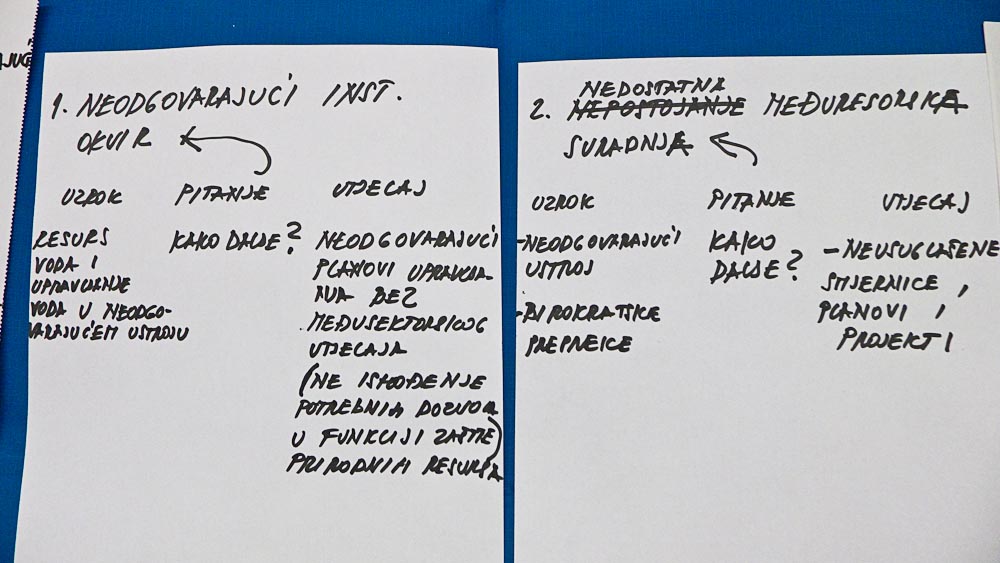 1. NEODGOVARAJUĆI INST.
OKVIR
UZROK PITANJE UTJECAJ
RESURS
VODA I
UPRAVLJANJE
VODA U NEODGO-
VARAJUĆEM USTROJU
KAKO DALJE?
NEODGOVARAJUĆI
PLANOVI UPRAVLJA-
NJA BEZ
MEĐUSEKTORSKOG
UTJECAJA
(NE ISHOĐENJE
POTREBNIH DOZVOLA
U FUNKCIJI ZAŠTITE
PRIRODNIH RESURSA)
NEDOSTATNA
2. NEPOSTOJANJE MEĐURESORSKA
SURADNJA
UZROK PITANJE UTJECAJ
-NEODGOVARAJUĆI
USTROJ
-BIROKRATSKE
PREPREKE
KAKO
DALJE?
- NEUSUGLAŠENE
SMJERNICE,
PLANOVI I
PROJEKTI